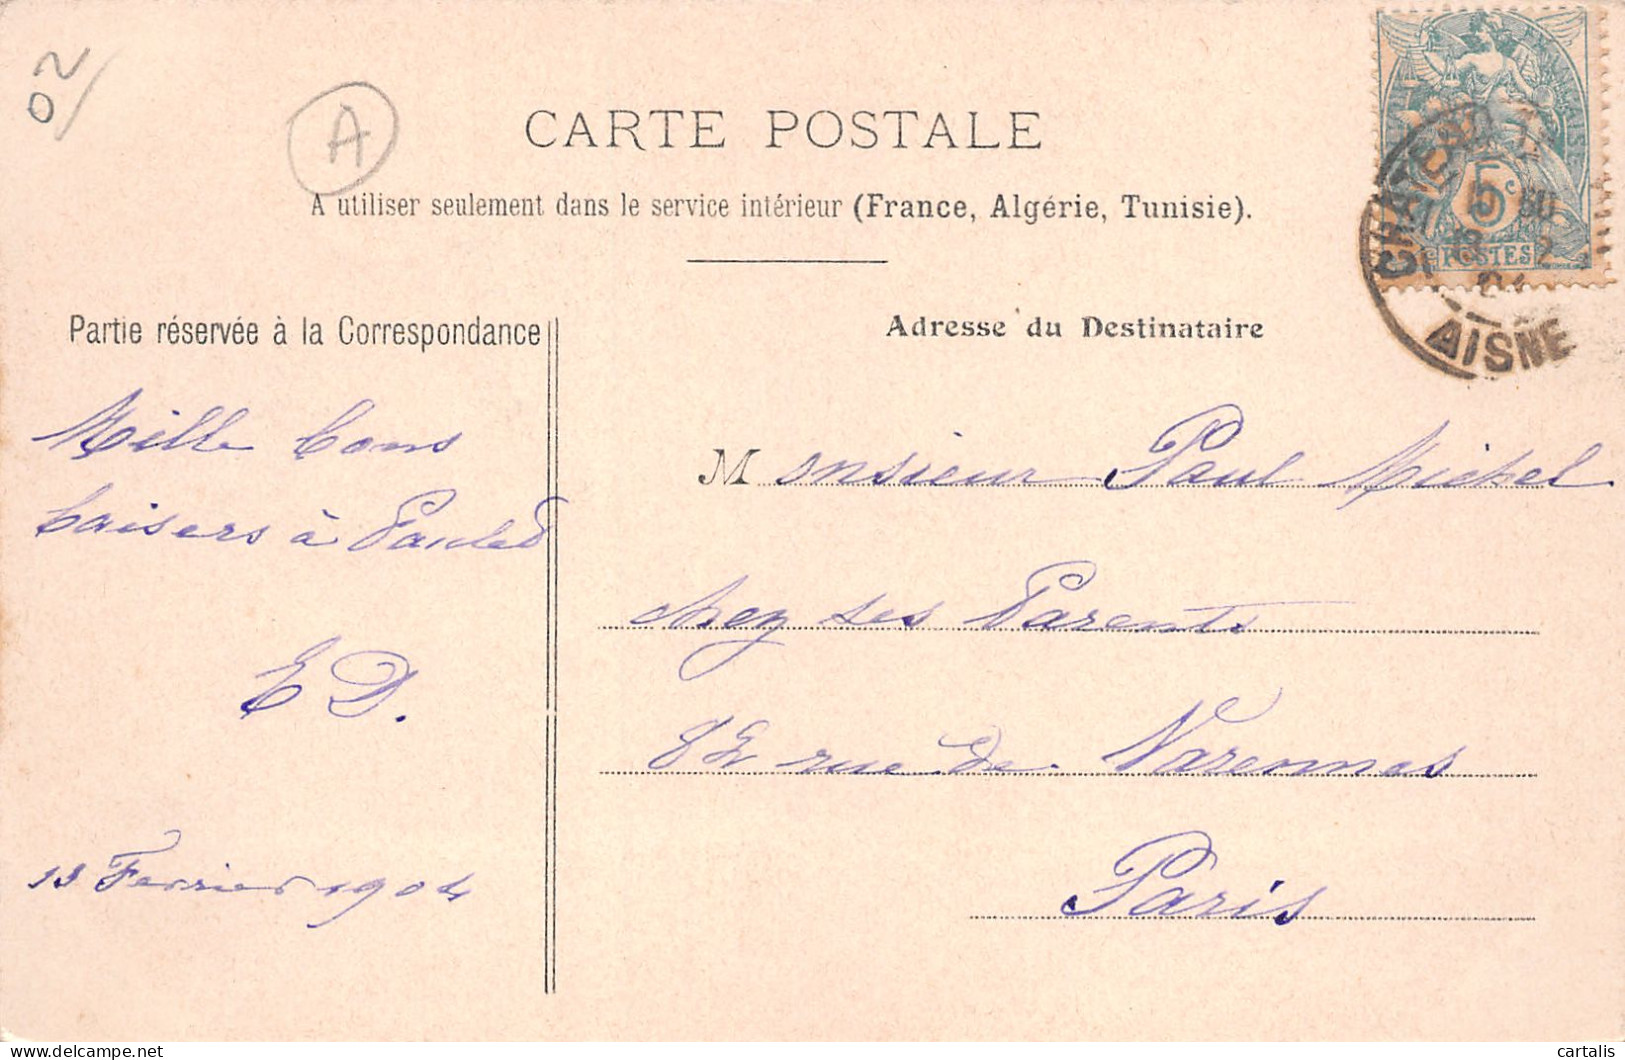 02
A
CARTE POSTALE
A utiliser seulement dans le service intérieur (France, Algérie, Tunisie).
5c
POSTES
13 2
AISNE
Partie réservée à la Correspondance
Adresse du Destinataire
Mille bons
baisers à
E D.
13 Fevrier 1904
Monsieur Paul Michel
chez ses Parents
rue de Varennes
Paris
delcampe.net
cartalis